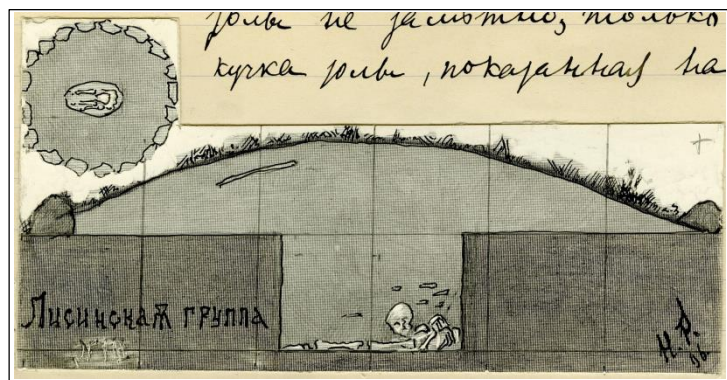 золы не замѣтно, только
кучка золы, показанная на
Лисинская группа
Н. Р.